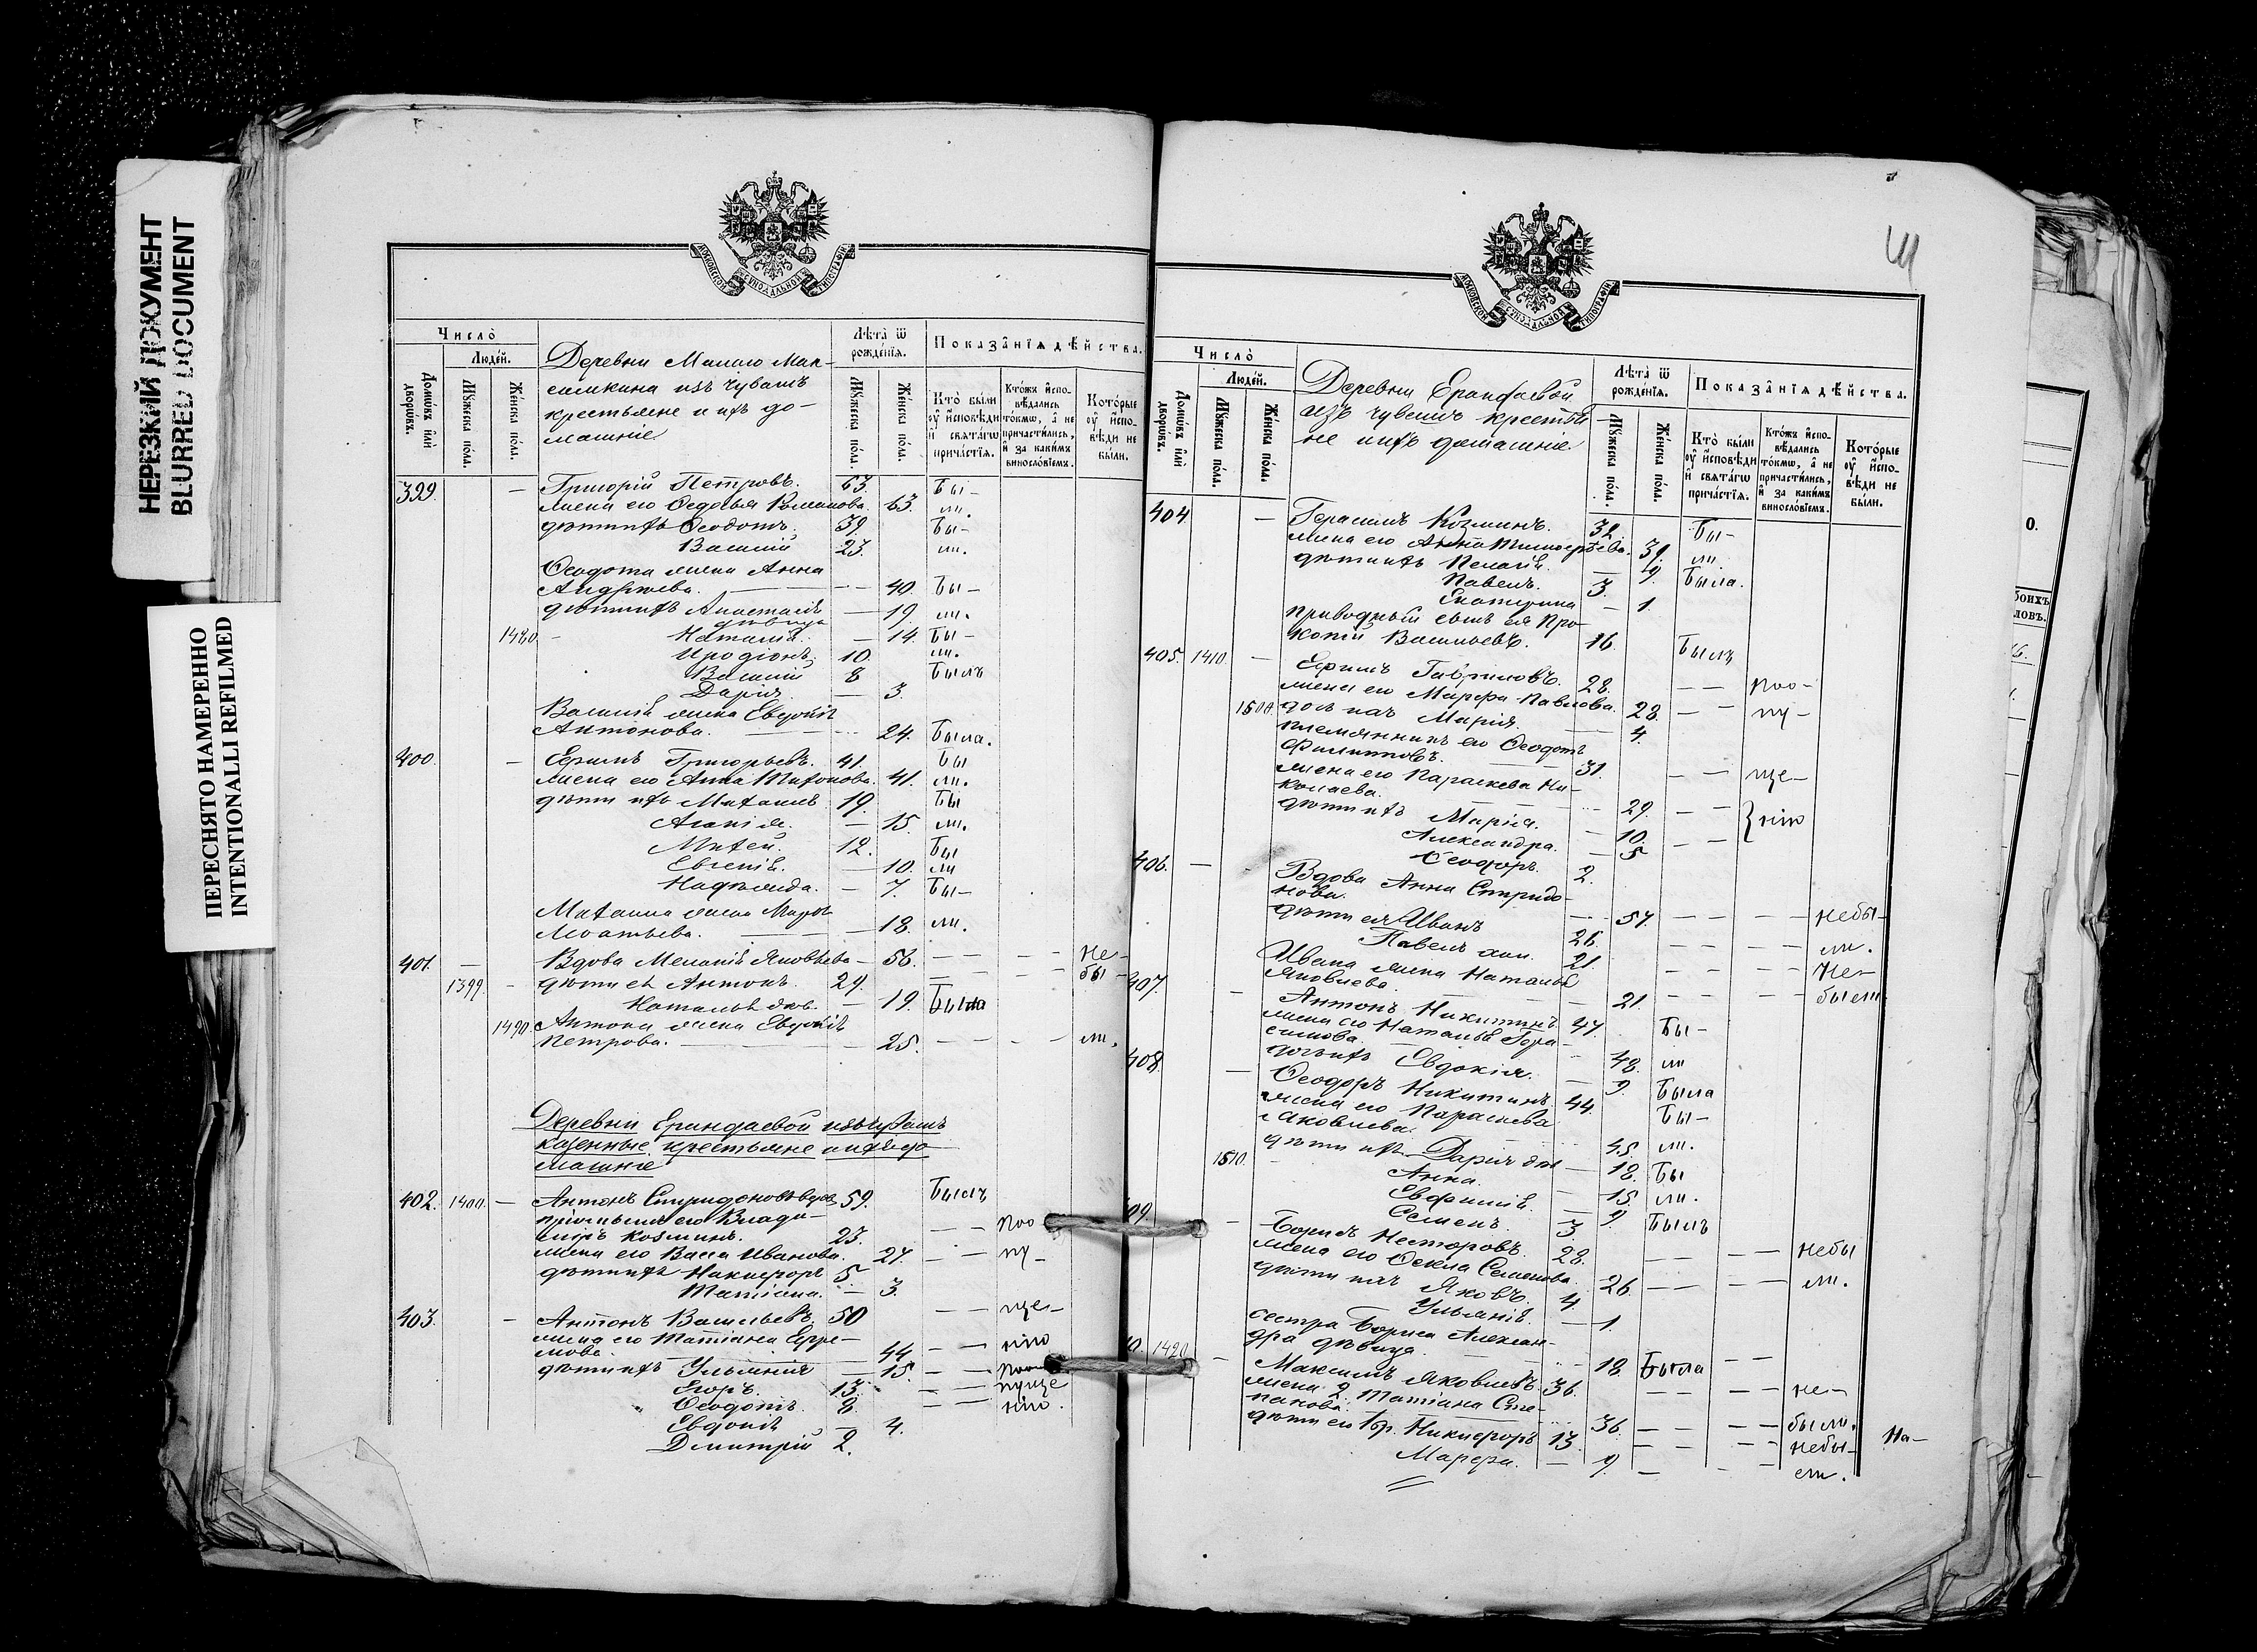 НЕРЕЗКИЙ ДОКУМЕНТ
BLURRED DOCUMENT
ПЕРЕСНЯТО НАМЕРЕННО
INTENTIONALLI REFILMED
МОСКОВСКОЙ СУНОДАЛЬНОЙ ТИПОГРАФІИ
Число̀
Людéй.
Домѡ́въ и҆лѝ дворѡ́въ.
Мꙋ́жеска по́ла.
Же́нска по́ла.
Деревни Малаго Мак-
симкина изъ чувашъ
крестьяне и ихъ до-
машніе
Лѣта̀ ѿ рожде́нїѧ.
Мꙋ́жеска по́ла.
Же́нска по́ла.
Показа̂нїѧ дѣ́йства.
Кто̀ бы́ли ᲂу҆ и҆́сповѣди и҆ свѧта́гѡ прича́стїѧ.
Кто́жъ и҆спо-вѣ́дались то́кмѡ, а҆ не причасти́лись, и҆ за каки́мъ винослові́емъ.
Кото́рые ᲂу҆ и҆́спо-вѣди не бы́ли.
399. — Григорій Петровъ. 63. Бы-
жена его Ѳедосья Романова. 63. ли.
дѣти ихъ Ѳеодотъ. 39. Бы-
Василий 23. ли.
Ѳеодота жена Анна
Андреева. — 40. Бы-
дѣти ихъ Анастасія — 19. ли.
девица
1480. - Наталія. — 14. Бы-
Иродіонъ. 10. ли.
Василій 8 Былъ
Дарія. — 3.
Василія жена Евдокія
Антонова. — 24. Была.
400. — Ефимъ Григорьевъ. 41. Бы
жена его Анна Тихонова. 41. ли.
дѣти ихъ Михаилъ 19. Бы
Агапія. — 15. ли.
Матѳей. 12. Бы
Евгенія. — 10. ли
Надежда. — 7. Бы-
Михаила жена
— 18. ли.
401. — Вдова Меланія Яковлева — 56. — — — — Не-
1399. - дѣти ея Антонъ. 29. бы-
Наталья дѣв. — 19. Была
1490. Антона жена Евдокія
Петрова. — 25. — — ли.
Деревни Ерандаевой изъ чувашъ
казенные крестьяне и ихъ до
машніе
402. 1400. — Антонъ Спиридоновъ вдов. 59. Былъ
Влади-
міръ Козминъ. 23. — — поо
жена его Васса Иванова. 27. — — пу-
дѣти ихъ Никифоръ 5.
Татіана. — 3.
403. - Антонъ Васильевъ 50 — — ще-
жена его Татіана Ефре-
мова. — 44. — — нію
дѣти ихъ Ульянія — 15. — —
Егоръ. 13. — — пуще
Ѳеодотъ. 8. — — нію.
Евдокія — 4.
Димитрій 2.
МОСКОВСКОЙ СУНОДАЛЬНОЙ ТИПОГРАФІИ
Число̀
Людéй.
Домѡ́въ и҆лѝ дворѡ́въ.
Мꙋ́жеска по́ла.
Же́нска по́ла.
Деревни Ерандаевой
изъ чувашъ крестья
не и ихъ домашніе
Лѣта̀ ѿ рожде́нїѧ.
Мꙋ́жеска по́ла.
Же́нска по́ла.
Показа̂нїѧ дѣ́йства.
Кто̀ бы́ли ᲂу҆ и҆́сповѣди и҆ свѧта́гѡ прича́стїѧ.
Кто́жъ и҆спо-вѣ́дались то́кмѡ, а҆ не причасти́лись, и҆ за каки́мъ винослові́емъ.
Кото́рые ᲂу҆ и҆́спо-вѣди не бы́ли.
404 — Герасимъ Козминъ. 32. Бы-
жена его Анна Тимоѳеева. 39. ли
дѣти ихъ Пелагія. — 9. Была.
Павелъ. 3.
Екатерина — 1.
приводный сынъ ея Про-
копій Васильевъ. 16. Былъ
405. 1410. — Ефимъ Гавриловъ. 28. — — поо-
жена его Марфа Павлова. 28. — — пу-
1500. дочь ихъ Марія. — 4.
племянникъ его Ѳеодотъ
Филипповъ. 31. — — ще-
жена его Параскева Ни-
колаева. 29. — — нію
дѣти ихъ Марія. — 10. — —
Александра. — 5
Ѳеодоръ. 2.
406. — - Вдова Анна Спиридо-
нова. 57. — — — — небы-
дѣти ея Иванъ 26. — — — — ли.
Павелъ хол. 21. — — — — Не-
Ивана жена Наталья
Яковлева. — 21. — — — — были.
407. - Антонъ Никитинъ 47. Бы-
жена его Наталья Гера-
симова. — 48. ли
дочь ихъ Евдокія. — 9. Была
408. — Ѳеодоръ Никитинъ. 44. Бы-
жена его Параскева
Яковлева. 45. ли.
1510. дѣти ихъ Дарія — 18. Бы
Анна. — 15. ли.
Евфимія. — 9.
Семенъ. 3. Былъ
09. - Борисъ Несторовъ. 28. — — — небы
жена его Ѳекла Семенова. 26. — — — — ли.
дѣти ихъ Яковъ. 4.
Ульянія. — 1.
сестра Бориса Алексан-
дра дѣвица. — 18. Была — —
0. 1420. — Максимъ Яковлевъ. 36. — — — — не-
жена 2. Татіана Сте-
панова. 36. — — — — были.
дѣти его 1 бр. Никифоръ 13. — — — — небы-
Марфа. — 9. — — — ли.
На-
О.